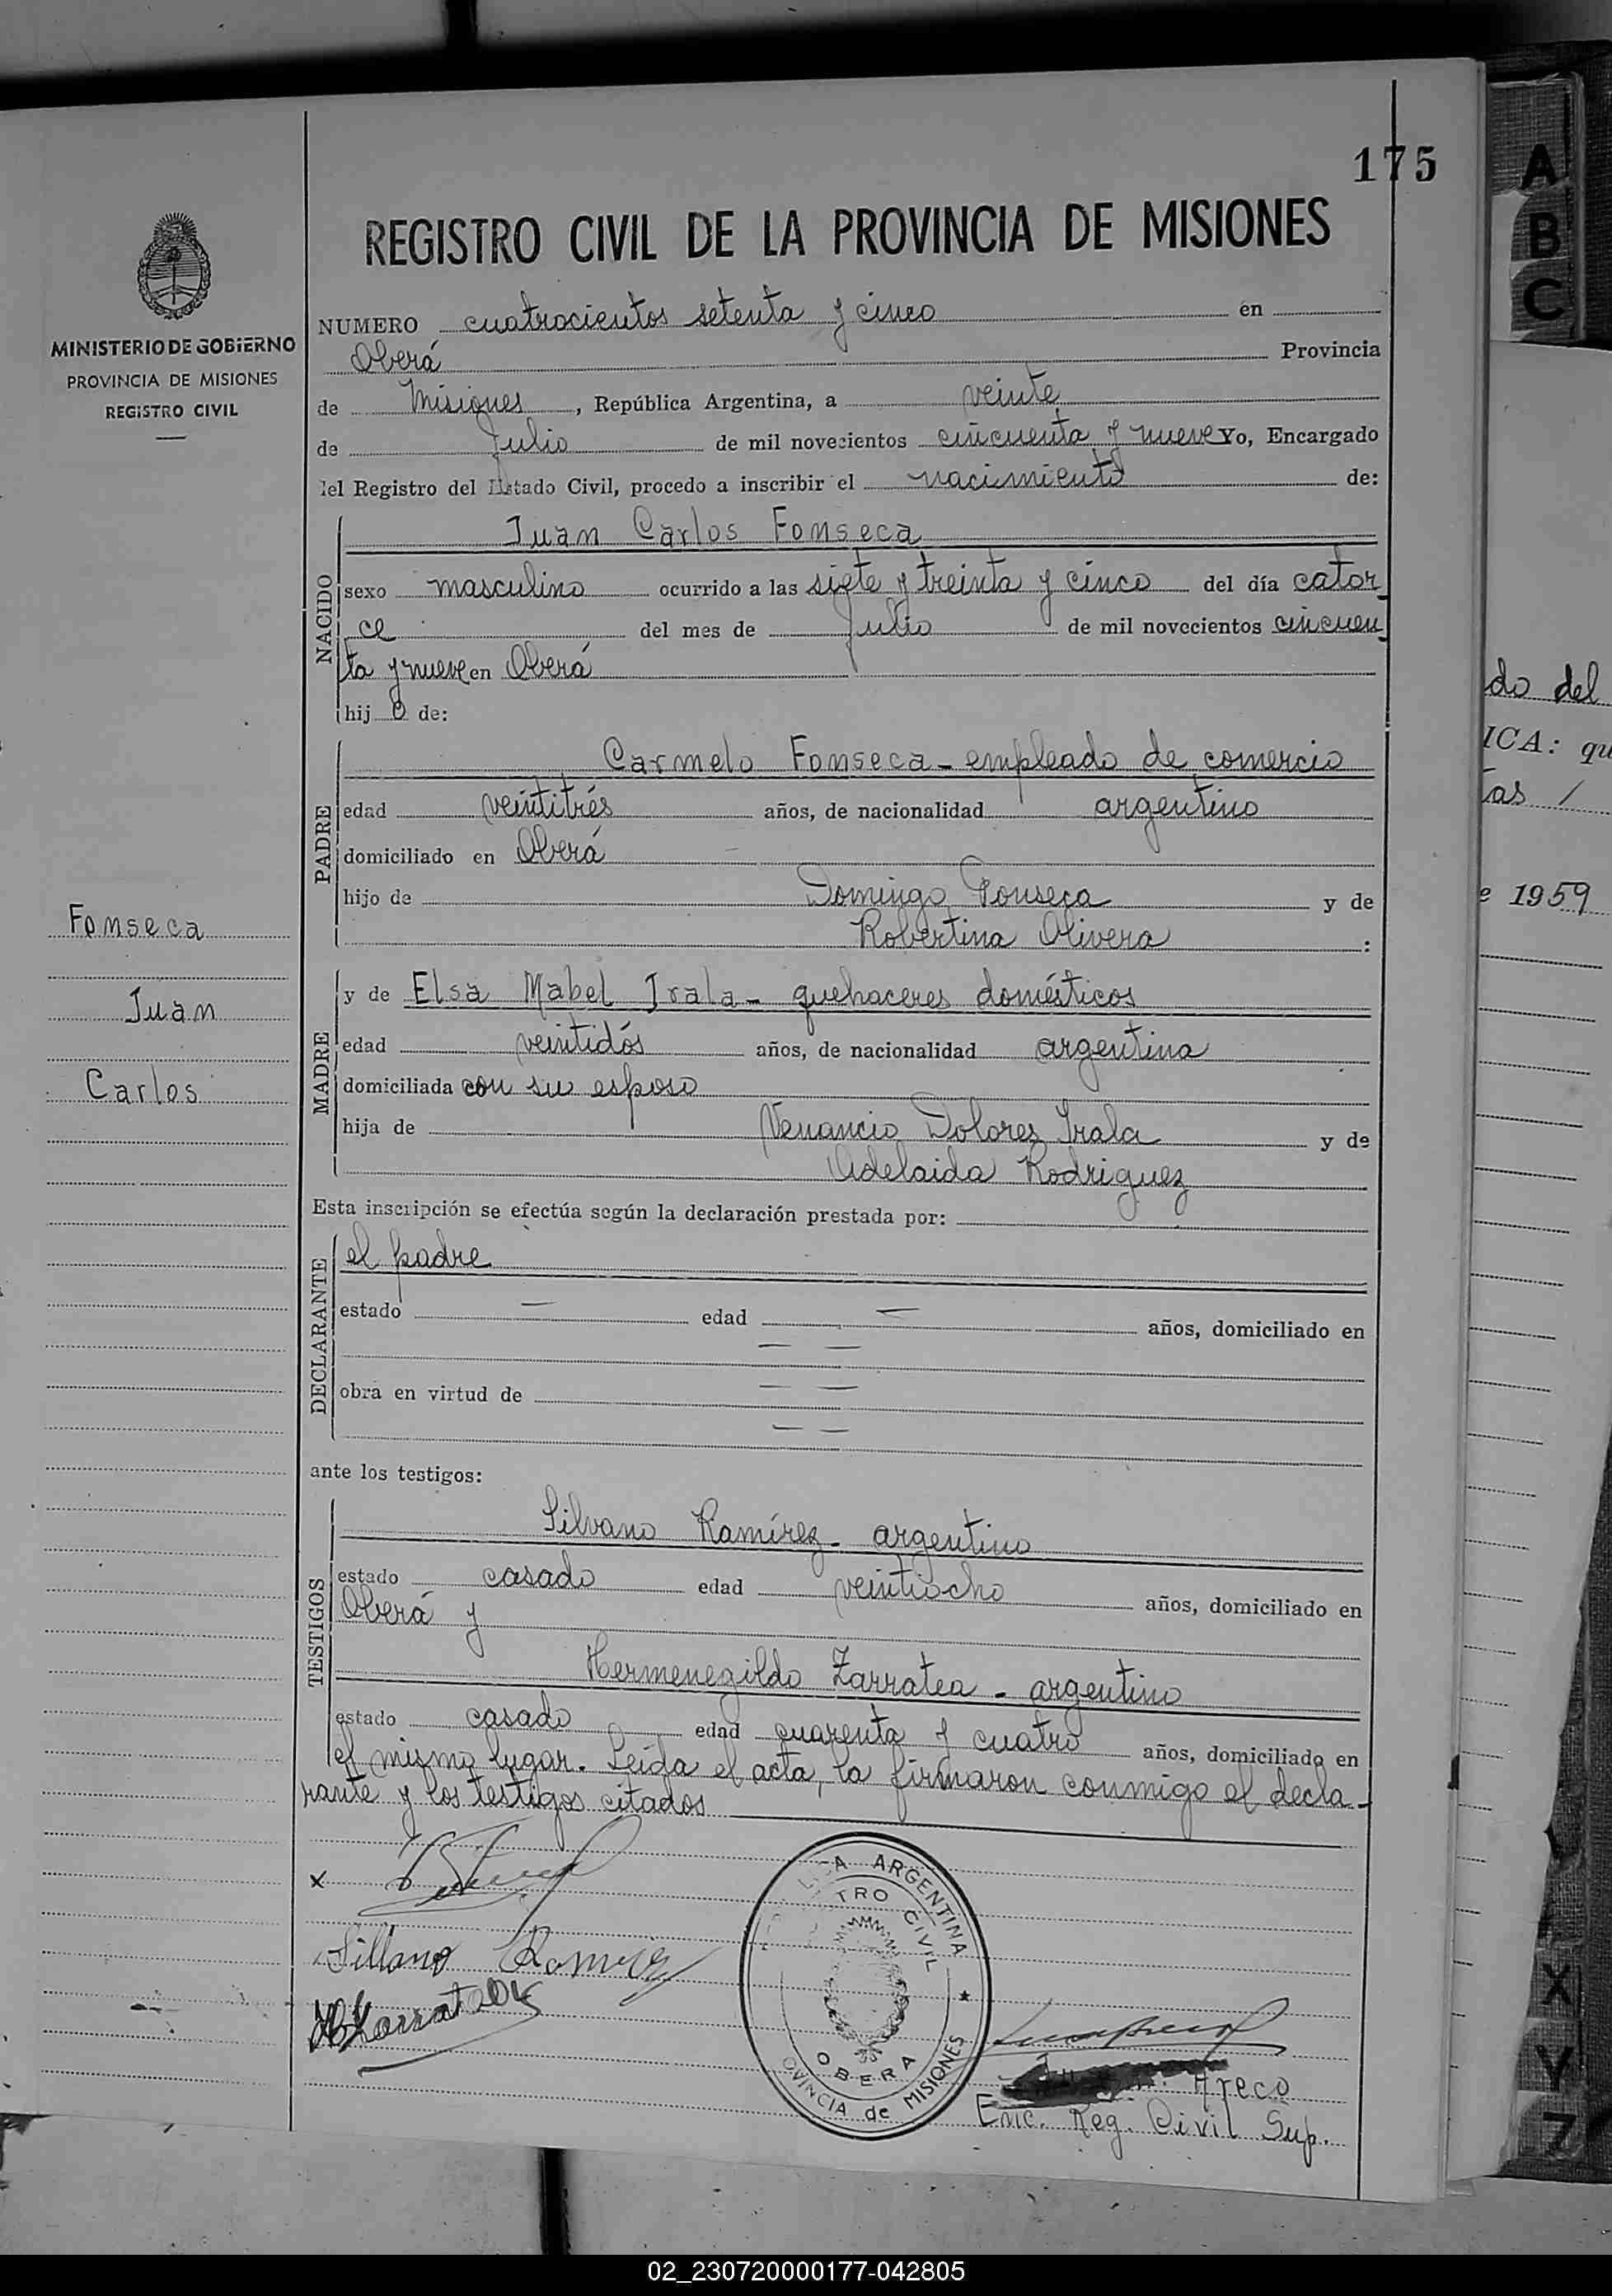 175
MINISTERIO DE GOBIERNO
PROVINCIA DE MISIONES
REGISTRO CIVIL
Fonseca
Juan
Carlos
REGISTRO CIVIL DE LA PROVINCIA DE MISIONES
NUMERO cuatrocientos setenta y cinco en
Oberá Provincia
de Misiones, República Argentina, a veinte
de Julio de mil novecientos cincuenta y nueve Yo, Encargado
del Registro del Estado Civil, procedo a inscribir el nacimiento de:
NACIDO
Juan Carlos Fonseca
sexo masculino ocurrido a las siete y treinta y cinco del día cator
ce del mes de Julio de mil novecientos cincuen
ta y nueve en Oberá
hijo de:
PADRE
Carmelo Fonseca - empleado de comercio
edad veintitrés años, de nacionalidad argentino
domiciliado en Oberá
hijo de Domingo Fonseca y de
Robertina Olivera :
MADRE
y de Elsa Mabel Irala - quehaceres domésticos
edad veintidós años, de nacionalidad argentina
domiciliada con su esposo
hija de Venancio Dolores Irala y de
Adelaida Rodriguez
Esta inscripción se efectúa según la declaración prestada por:
DECLARANTE
el padre
estado — edad — años, domiciliado en
— —
obra en virtud de — —
— —
ante los testigos:
TESTIGOS
Silvano Ramírez - argentino
estado casado edad veintiocho años, domiciliado en
Oberá y
Hermenegildo Zarratea - argentino
estado casado edad cuarenta y cuatro años, domiciliado en
el mismo lugar. Leída el acta, la firmaron conmigo el decla-
rante y los testigos citados
x
Sillano Ramirez
HZarratea
A ARGENTINA
TRO CIVIL
OBERA
OVINCIA de MISIONES
Areco
Enc. Reg. Civil Sup.
do del
ICA: qu
tas /
e 1959
A
B
C
X
Y
Z
02_230720000177-042805